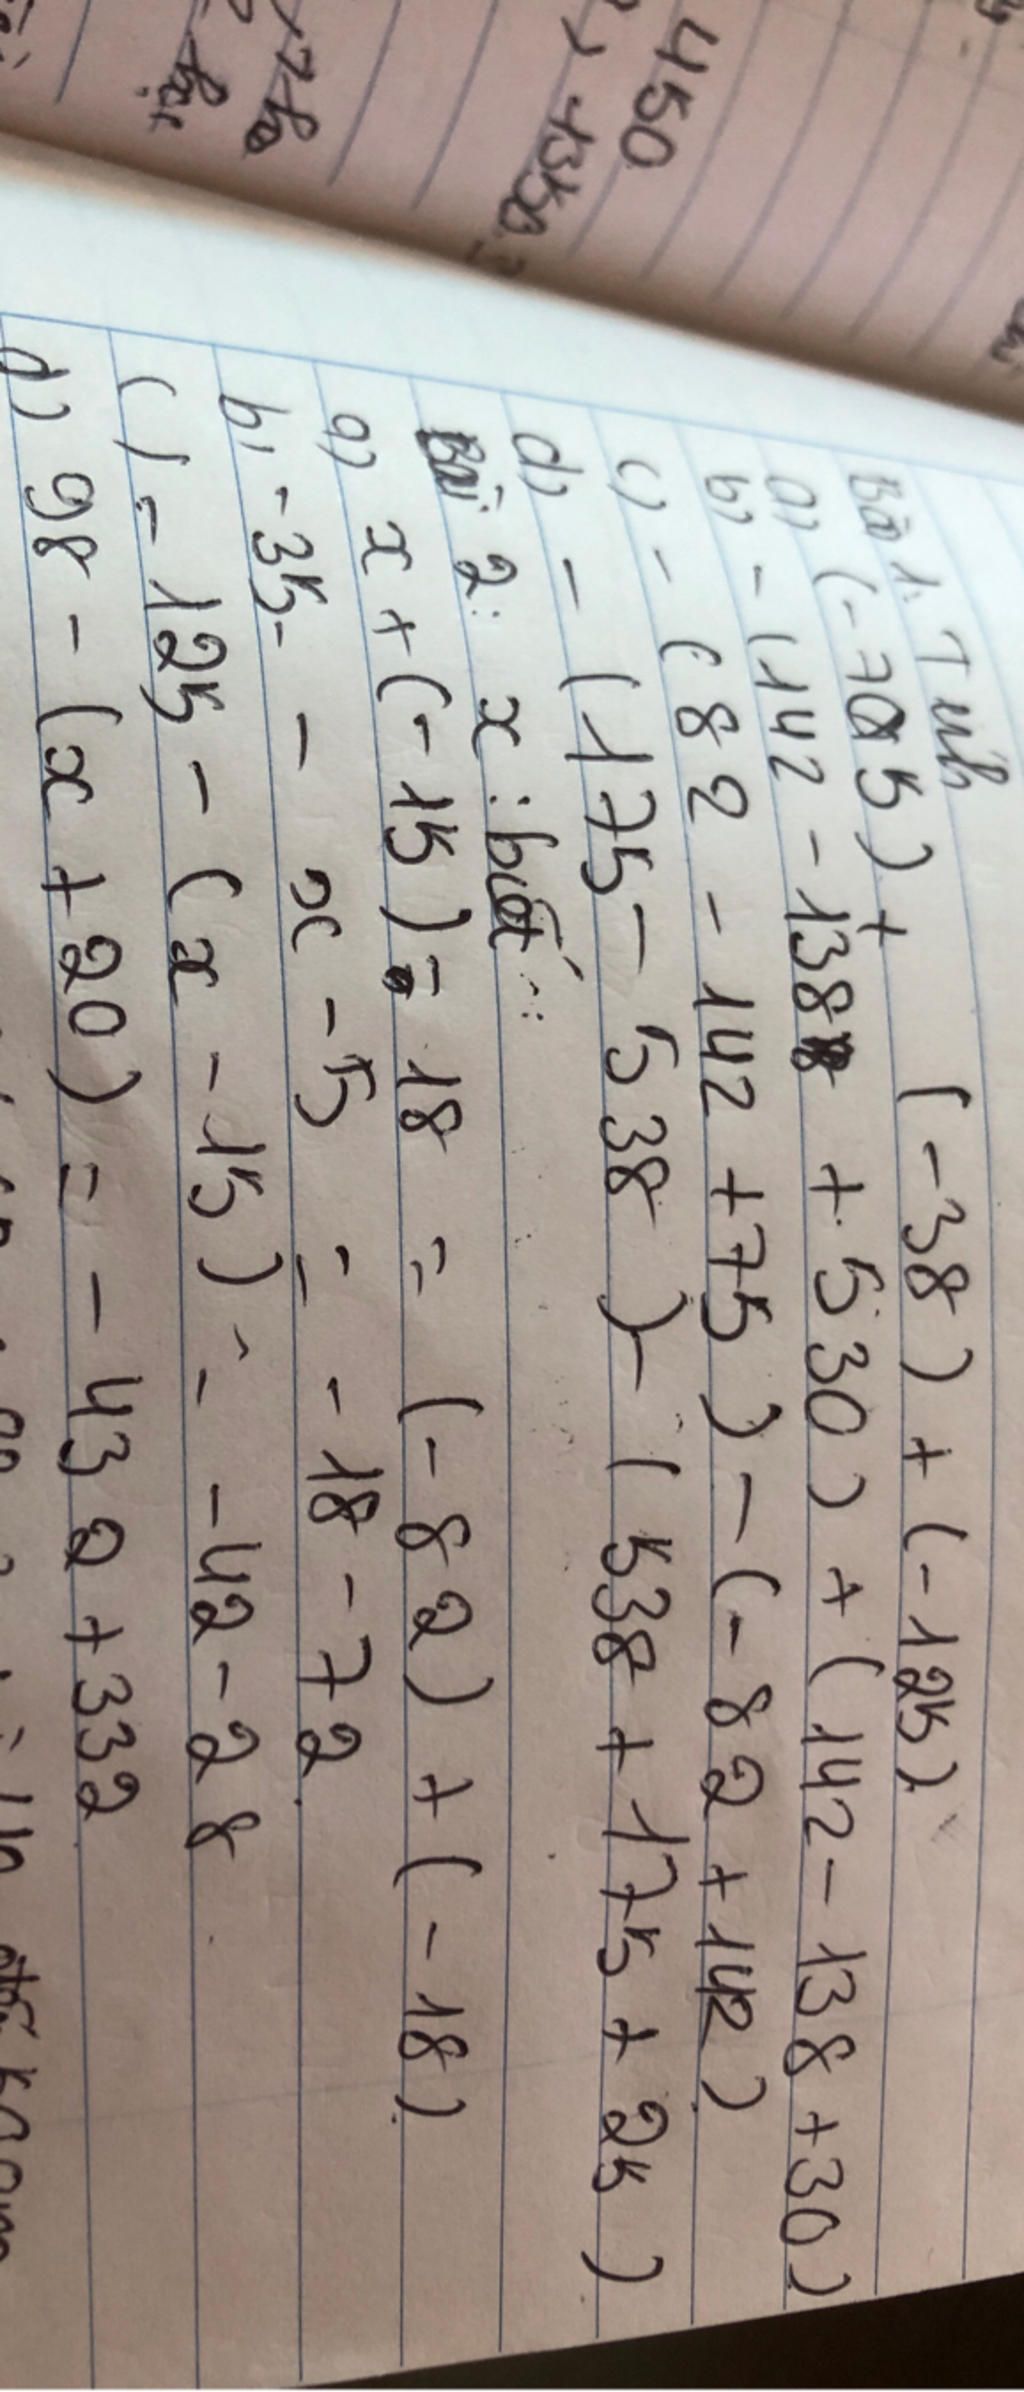 450
1350
Bài 1. Tính
a) (-705) + (-38) + (-125)
b) - (142 - 138 + 530) + (142 - 138 + 30)
c) - (82 - 142 + 75) - (-82 + 142)
d) - (175 - 538) - (538 + 175 + 25)
Bài 2: x : biết :
a) x + (-15) = 18 = (-82) + (-18)
b) -35 - x - 15 = -18 - 72
c) - 125 - (x - 15) = -42 - 28
d) 98 - (x + 20) = - 432 + 332